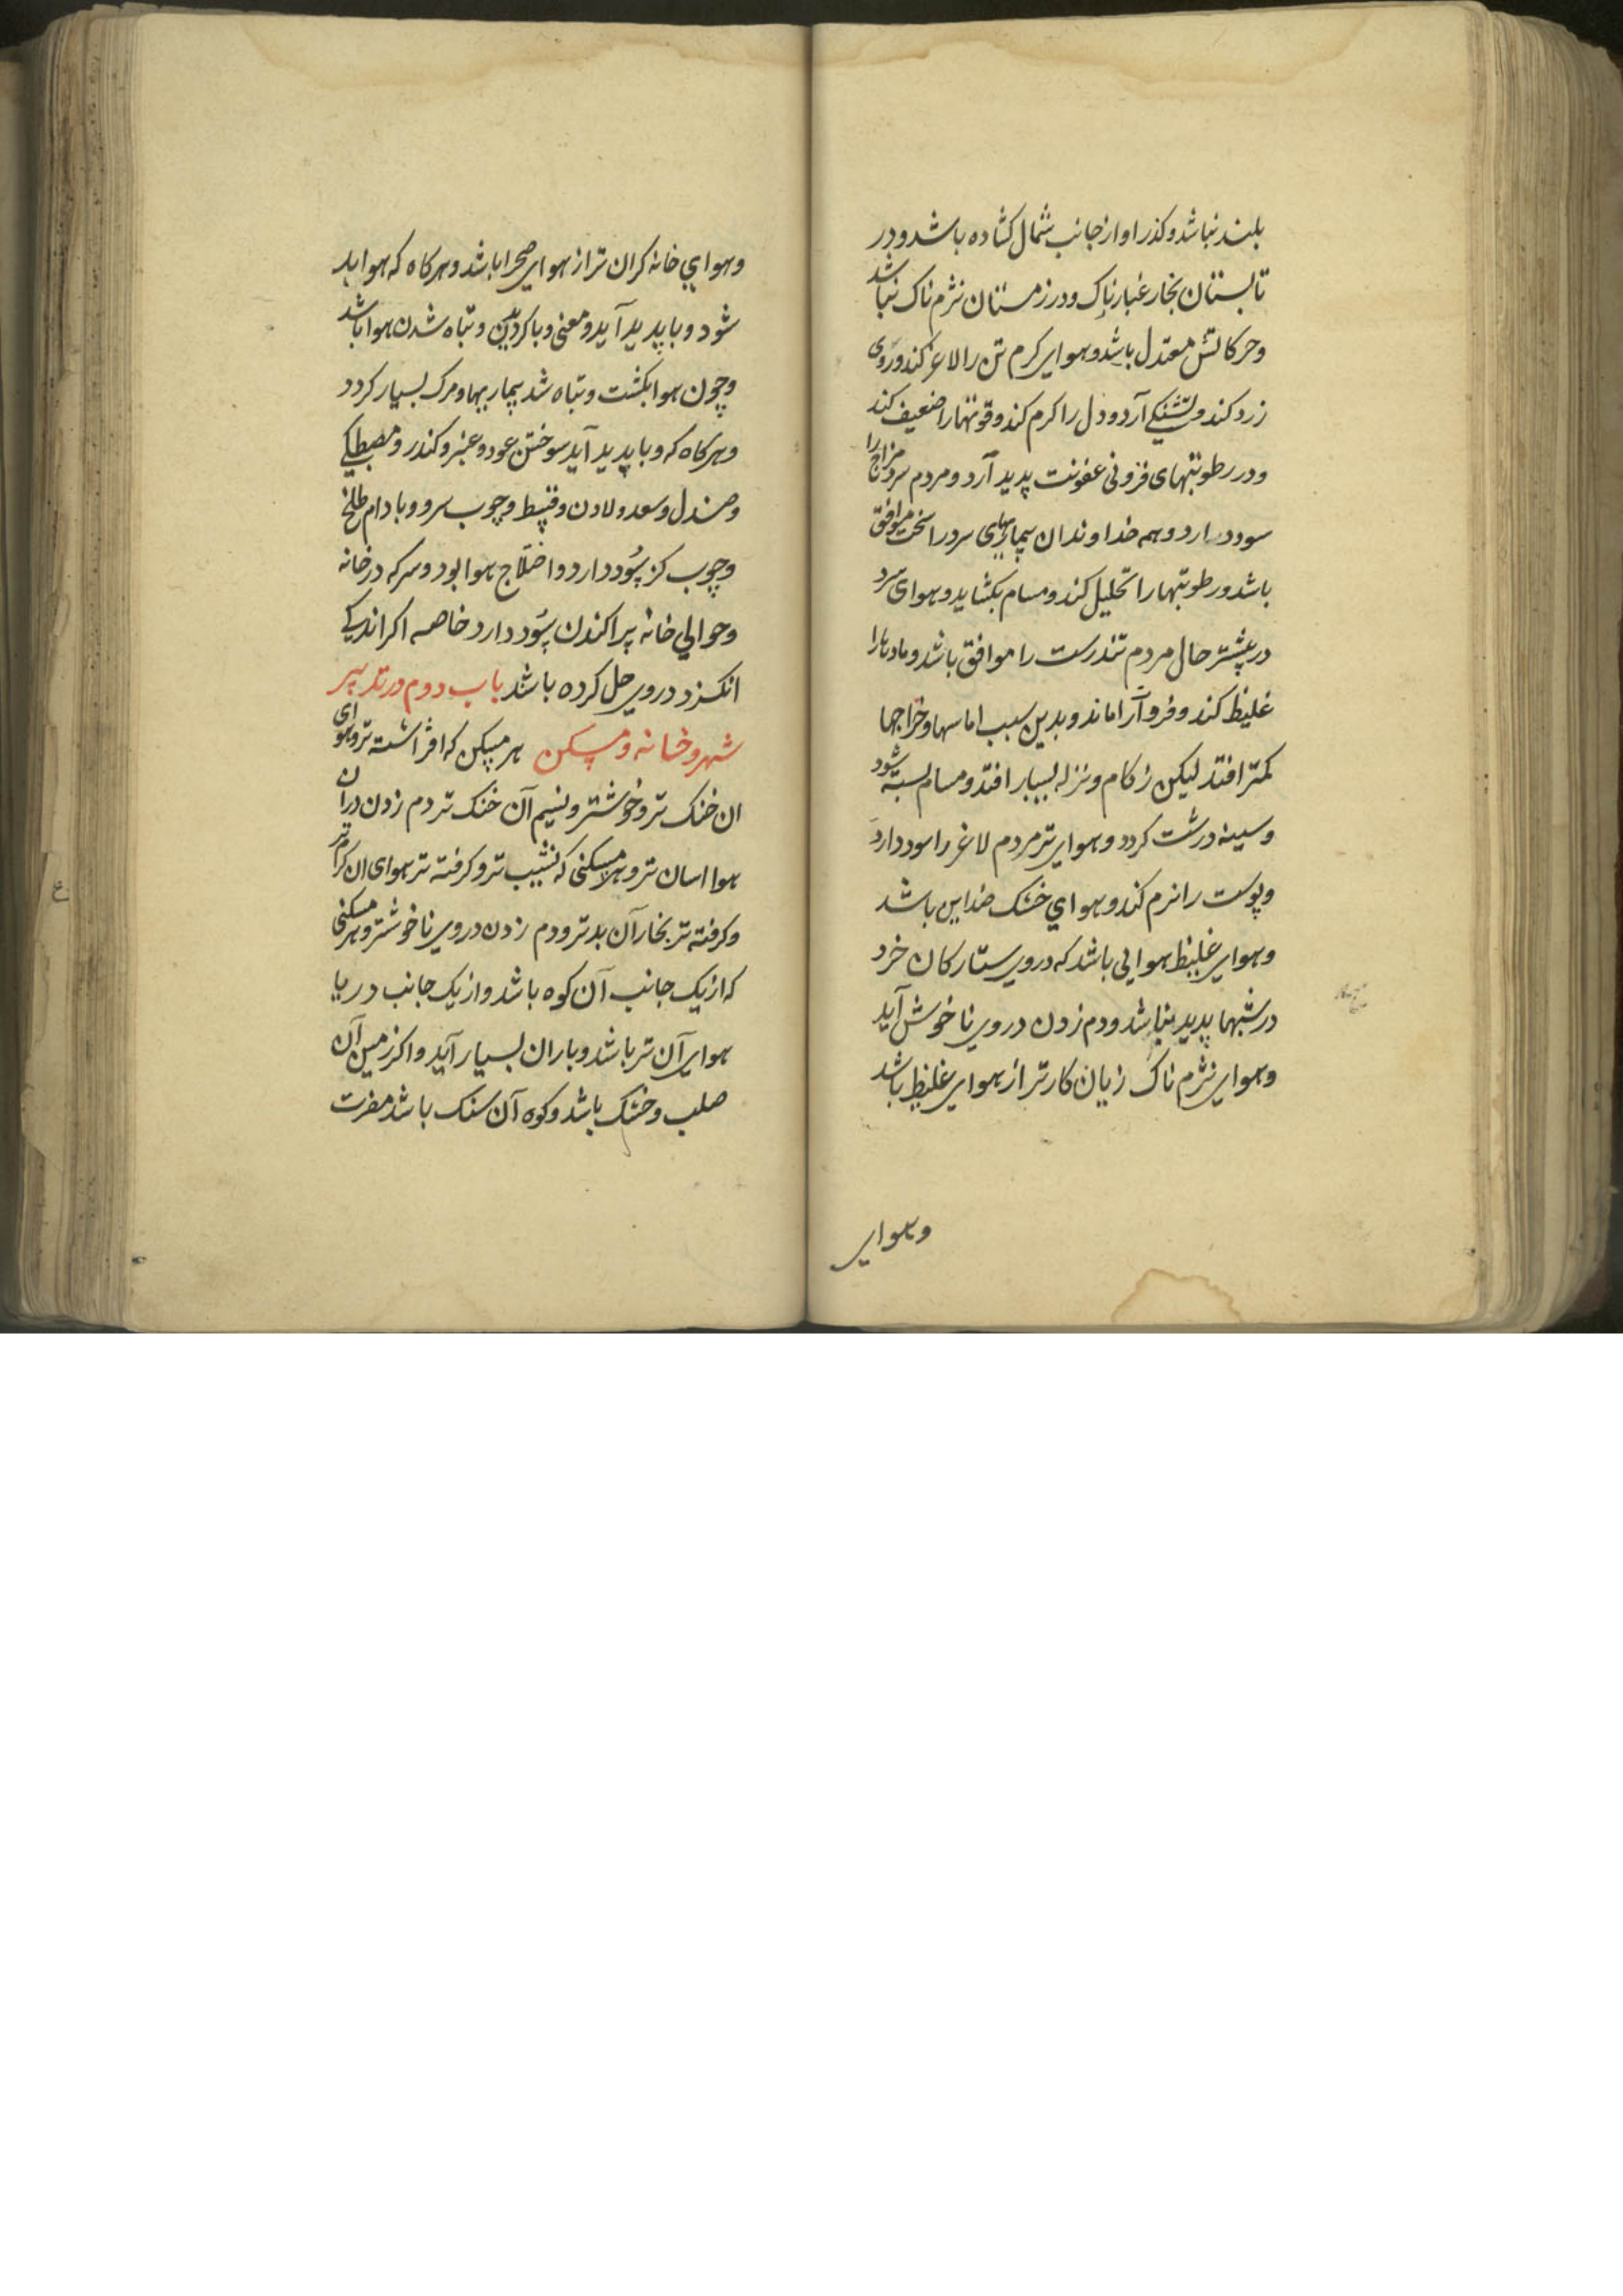 بلند نباشد و کذر او از جانب شمال کشاده باشد و در
تابستان بخار غبارناک و در زمستان نژم ناک نباشد
و حرکاتش معتدل باشد و هوای کرم تن را لاغر کند و روی
زرد کند و تشنکی آرد و دل را کرم کند و قوتها را ضعیف کند
و در رطوبتهای فزونی عفونت پدید آرد و مردم سرد مزاج را
سود دارد و هم خداوندان بیماریهای سرد را سخت موافق
باشد و رطوبتها را تحلیل کند و مسام بکشاید و هوای سرد
در بیشتر حال مردم تندرست را موافق باشد و مادتها را
غلیظ کند و فرو آراماند و بدین سبب اماسها و خراجها
کمتر افتد لیکن زکام و نزله بسیار افتد و مسام بسته شود
و سینه درشت کردد و هوای تر مردم لاغر را سود دارد
و پوست را نرم کند و هوای خشک ضد این باشد
و هوای غلیظ هوایی باشد که در وی ستارکان خرد
در شبها پدید نباشد و دم زدن در وی ناخوش آید
و هوای نژم ناک زیان کارتر از هوای غلیظ باشد
و هوای
و هوای خانه کران تر از هوای صحرا باشد و هرکاه که هوا بد
شود وبا پدید آید و معنی وبا کردیدن و تباه شدن هوا باشد
و چون هوا بکشت و تباه شد بیماریها و مرک بسیار کردد
و هرکاه که وبا پدید آید سوختن عود و عنبر و کندر و مصطکی
و صندل و سعد و لادن و قسط و چوب سرو و بادام طلخ
و چوب کز سود دارد و اصلاح هوا بود و سرکه در خانه
و حوالی خانه پراکندن سود دارد خاصه اکر اندکی
انکزد در وی حل کرده باشد باب دوم در تدبیر
شهر و خانه و مسکن هر مسکن که افراشته تر و هوای
ان خنک تر و خوشتر و نسیم آن خنک تر دم زدن دران
هوا اسان تر و هر مسکنی که نشیب تر و کرفته تر هوای ان کران تر
و کرفته تر بخار آن بدتر و دم زدن در وی ناخوشتر و هر مسکنی
که از یک جانب آن کوه باشد و از یک جانب دریا
هوای آن تر باشد و باران بسیار آید و اکر زمین آن
صلب و خشک باشد و کوه آن سنک باشد مضرت